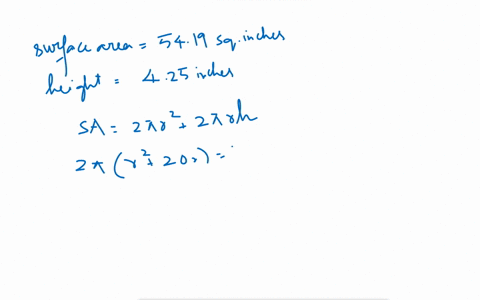 surface area = 54.19 sq.inches
height = 4.25 inches
SA = 2πr² + 2πrh
2π(r² + 20r) =